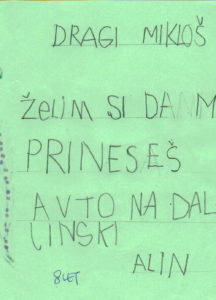 DRAGI MIKLOŠ
ŽELIM SI DA MI
PRINESEŠ
AVTO NA DAL
JINSKI
ALIN
8 LET